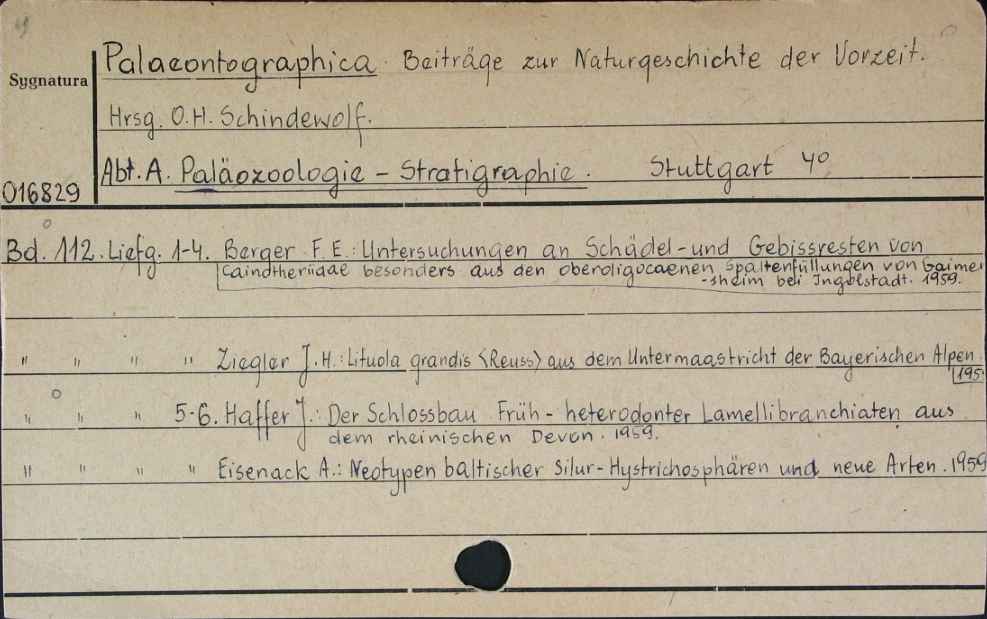 Palaeontographica. Beiträge zur Naturgeschichte der Vorzeit.
Sygnatura
Hrsg. O.H. Schindewolf.
Abt. A. Paläozoologie - Stratigraphie. Stuttgart 4°
016829
Bd. 112. Liefg. 1-4. Berger F. E.: Untersuchungen an Schädel- und Gebissresten von
Cainotheriidae besonders aus den oberoligocaenen Spaltenfüllungen von Gaimer
-sheim bei Ingolstadt. 1959.
" " " " Ziegler J.H.: Lituola grandis <Reuss> aus dem Untermaastricht der Bayerischen Alpen.
195
" " " 5-6. Haffer J.: Der Schlossbau Früh-heterodonter Lamellibranchiaten aus
dem rheinischen Devon. 1959.
" " " " Eisenack A.: Neotypen baltischer Silur-Hystrichosphären und neue Arten. 1959